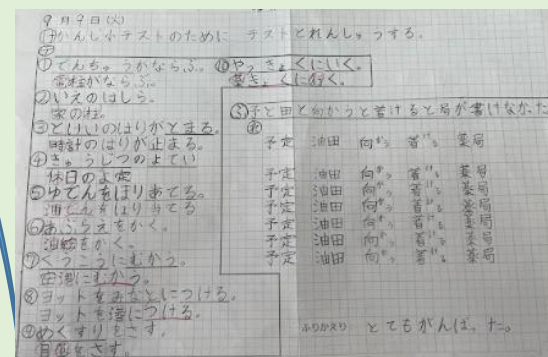 9月9日(火)
かん字小テストのために テストとれんしゅうする。
①でんちゅうがならぶ。
電柱がならぶ。
②いえのはしら。
家の柱。
③とけいのはりがとまる。
時計のはりが止まる。
④きゅうじつのよてい
休日のよ定
⑤ゆでんをはりあてる。
油でんをほり当てる
⑥あぶらえをかく。
油絵をかく。
⑦くうこうにむかう。
空港にむかう。
⑧ヨットをみなとにつける。
ヨットを港につける。
⑨めぐすりをさす。
目薬をさす。
⑩やっきょくにいく。
薬きょくに行く。
予と田と向かうと着けると局が書けなかった
予定 油田 向かう 着ける 薬局
予定 油田 向かう 着ける 薬局
予定 油田 向かう 着ける 薬局
予定 油田 向かう 着ける 薬局
予定 油田 向かう 着ける 薬局
予定 油田 向かう 着ける 薬局
ふりかえり とてもがんばった。